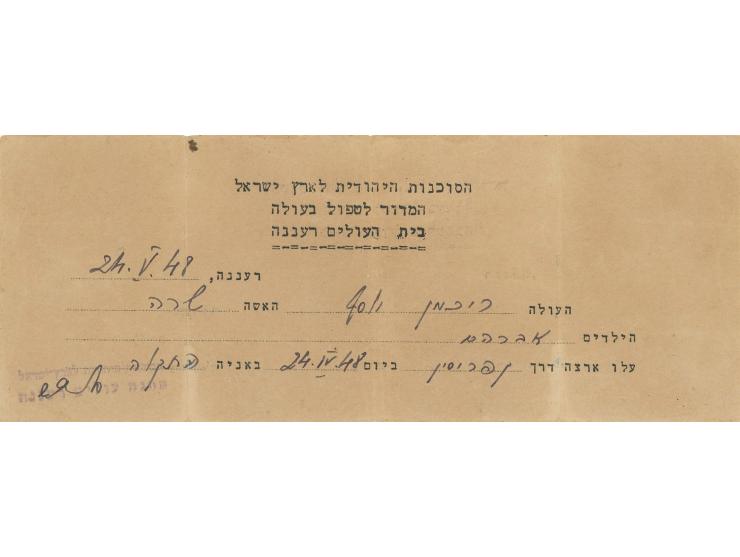 הסוכנות היהודית לארץ ישראל
המדור לטפול בעולה
בית העולים רעננה
רעננה, 24.V.48
העולה ריכמן יוסף האשה שרה
הילדים אברהם
עלו ארצה דרך קפריסין ביום 24.IV.48 באניה התקוה
לארץ ישראל